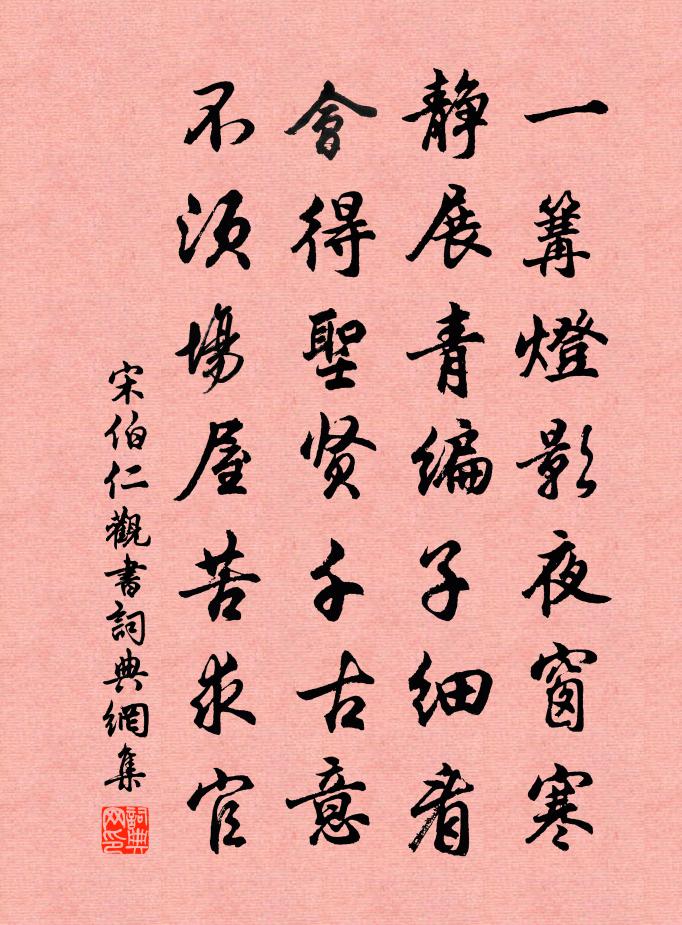 一篝燈影夜窗寒
靜展青編子細看
會得聖賢千古意
不須場屋苦求官
宋伯仁觀書詞典網集
詞典网印